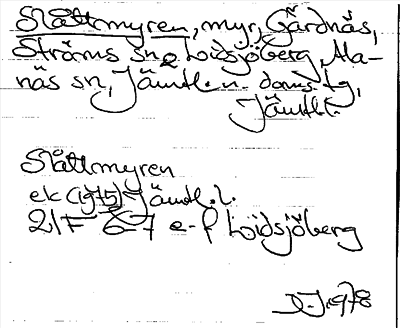 Slåttmyren, myr, Gärdnäs,
Ströms sn o Lidsjöberg, Ala-
näs sn, Jämtl. n. doms tg,
Jämtl.l.
Slåttmyren
ek (1975) Jämtl.l.
21F 6-7 e-f Lidsjöberg
1978